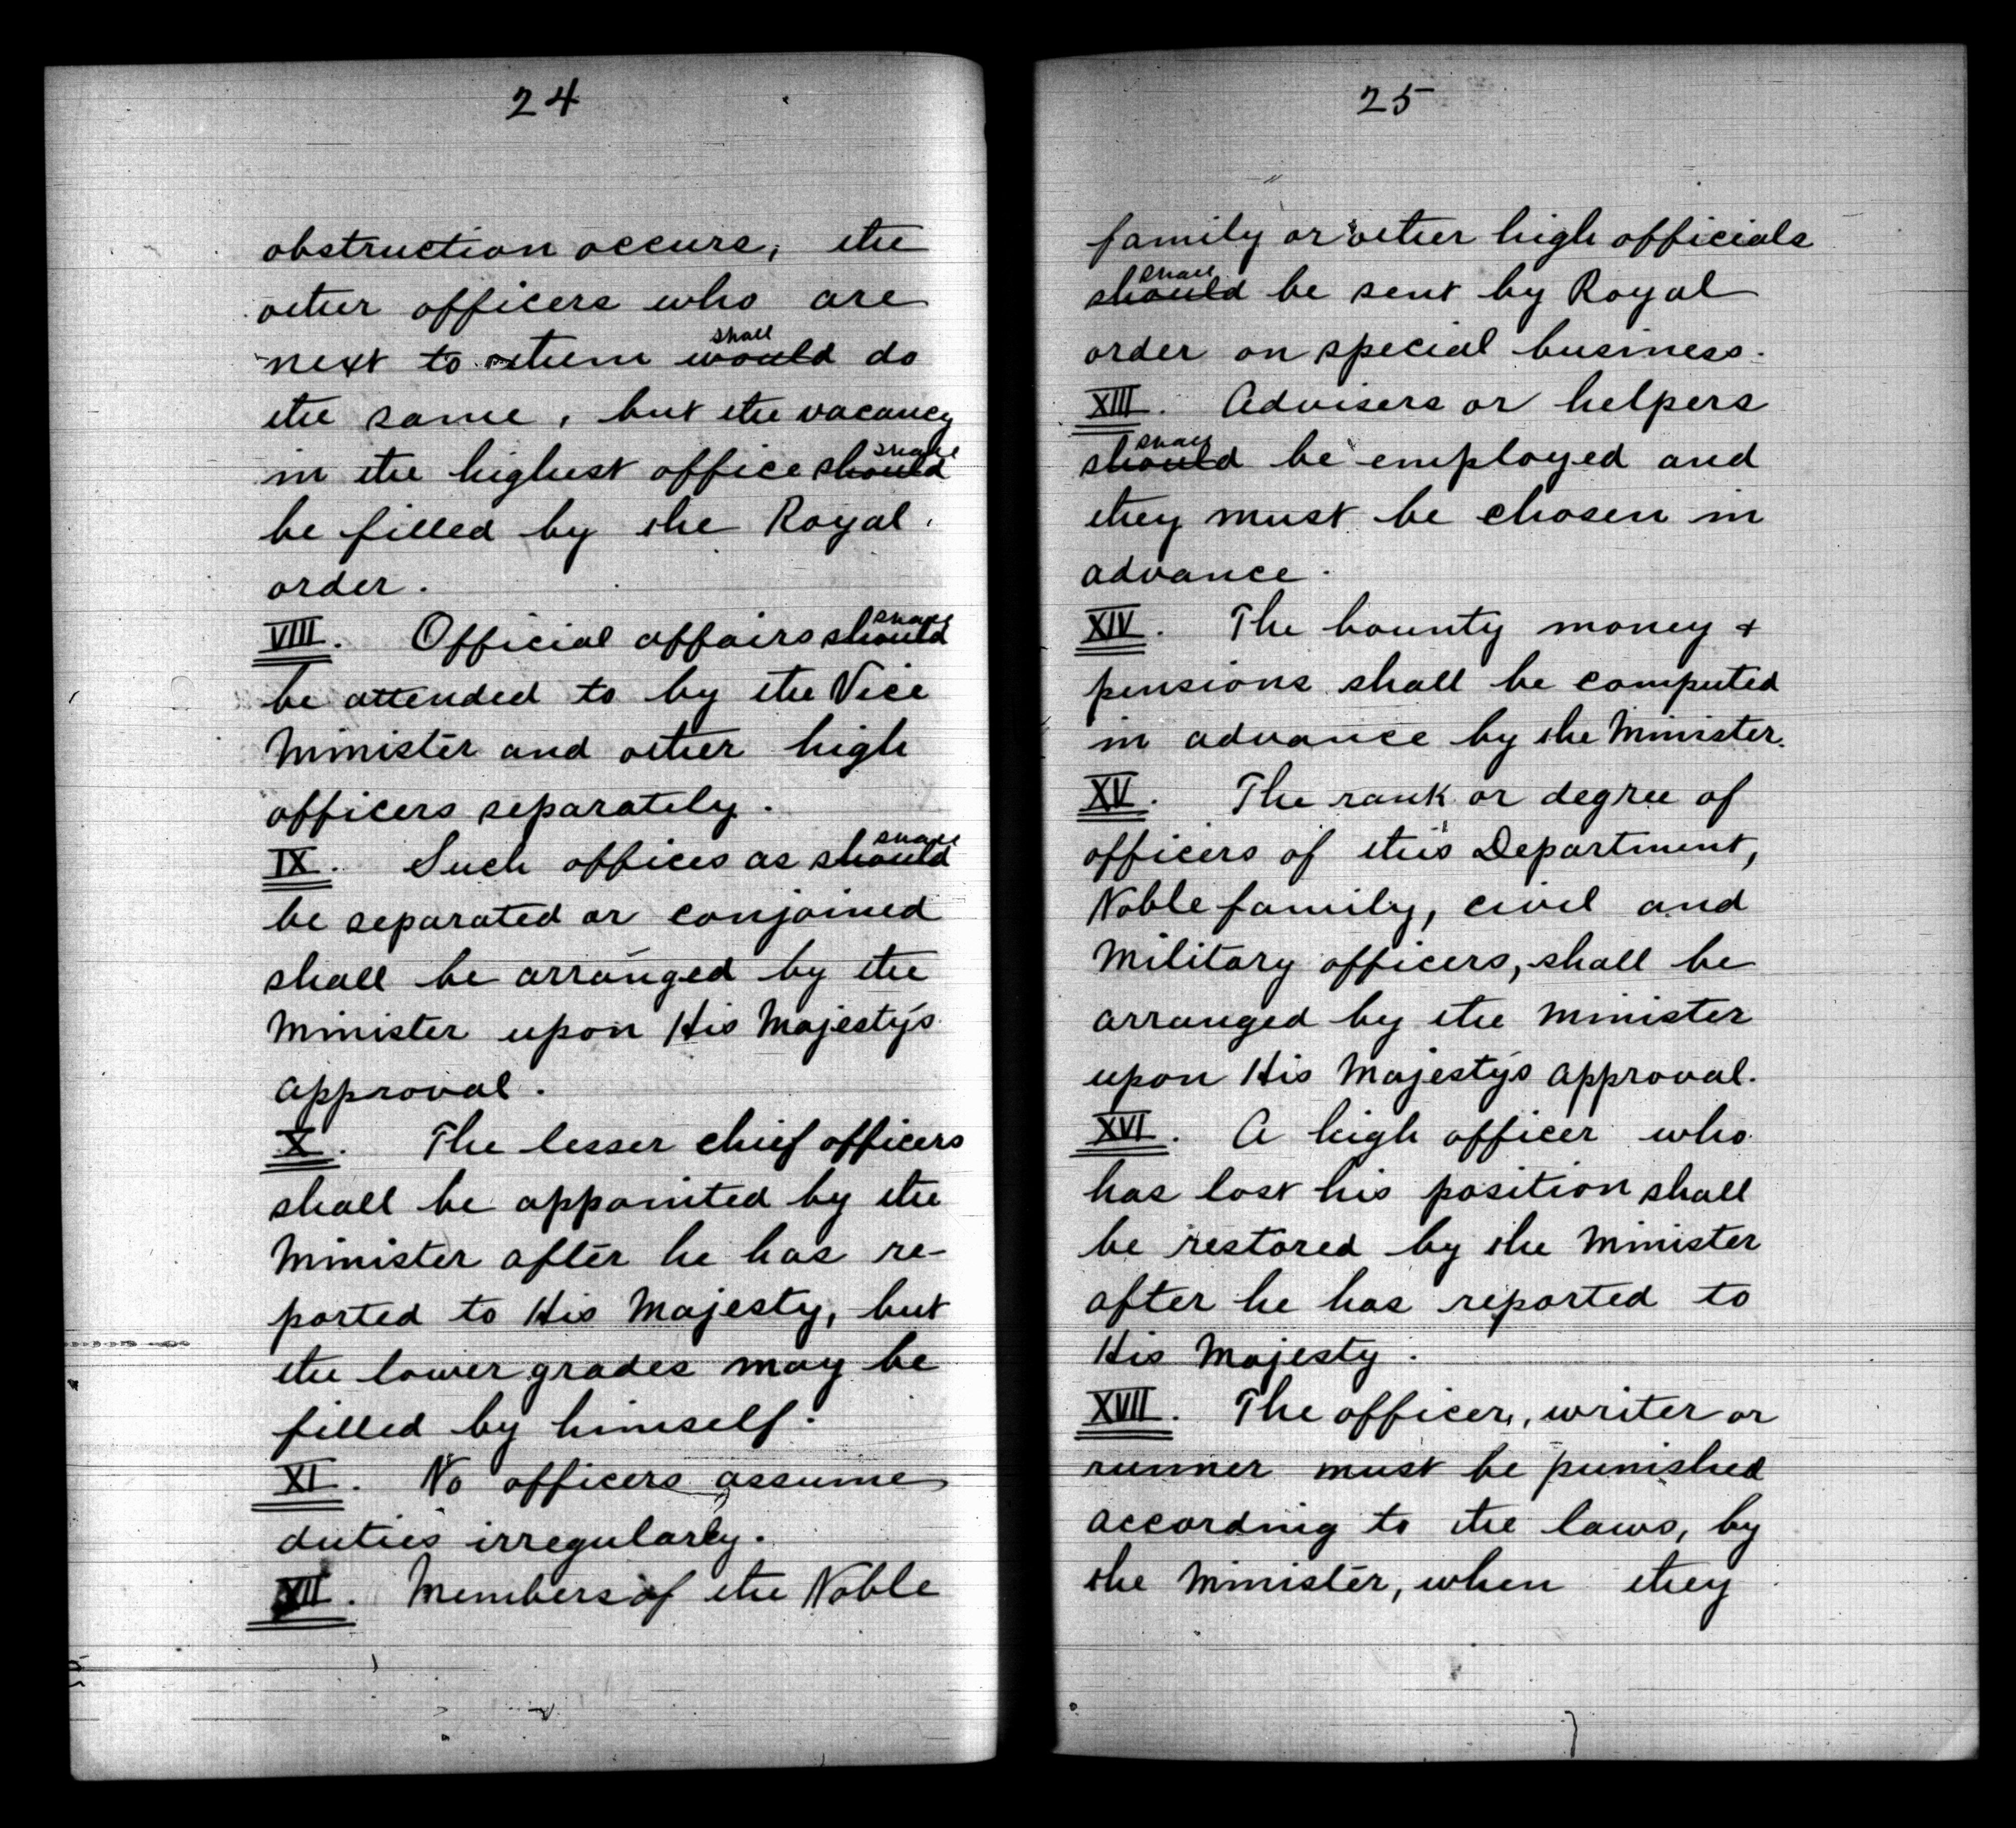 24
obstruction occurs, the
other officers who are
next to them ~~would~~ shall do
the same, but the vacancy
in the highest office ~~should~~ shall
be filled by the Royal
order.
VIII. Official affairs ~~should~~ shall
be attended to by the Vice
Minister and other high
officers separately.
IX. Such offices as ~~should~~ shall
be separated or conjoined
shall be arranged by the
Minister upon His Majesty's
approval.
X. The lesser chief officers
shall be appointed by the
Minister after he has re-
ported to His Majesty, but
the lower grades may be
filled by himself.
XI. No officers assume
duties irregularly.
XII. Members of the Noble
25
family or other high officials
~~should~~ shall be sent by Royal
order on special business.
XIII. Advisers or helpers
~~should~~ shall be employed and
they must be chosen in
advance.
XIV. The bounty money &
pensions shall be computed
in advance by the Minister.
XV. The rank or degree of
officers of this Department,
Noble family, civil and
Military officers, shall be
arranged by the Minister
upon His Majesty's approval.
XVI. A high officer who
has lost his position shall
be restored by the Minister
after he has reported to
His Majesty.
XVII. The officer, writer or
runner must be punished
according to the laws, by
the Minister, when they